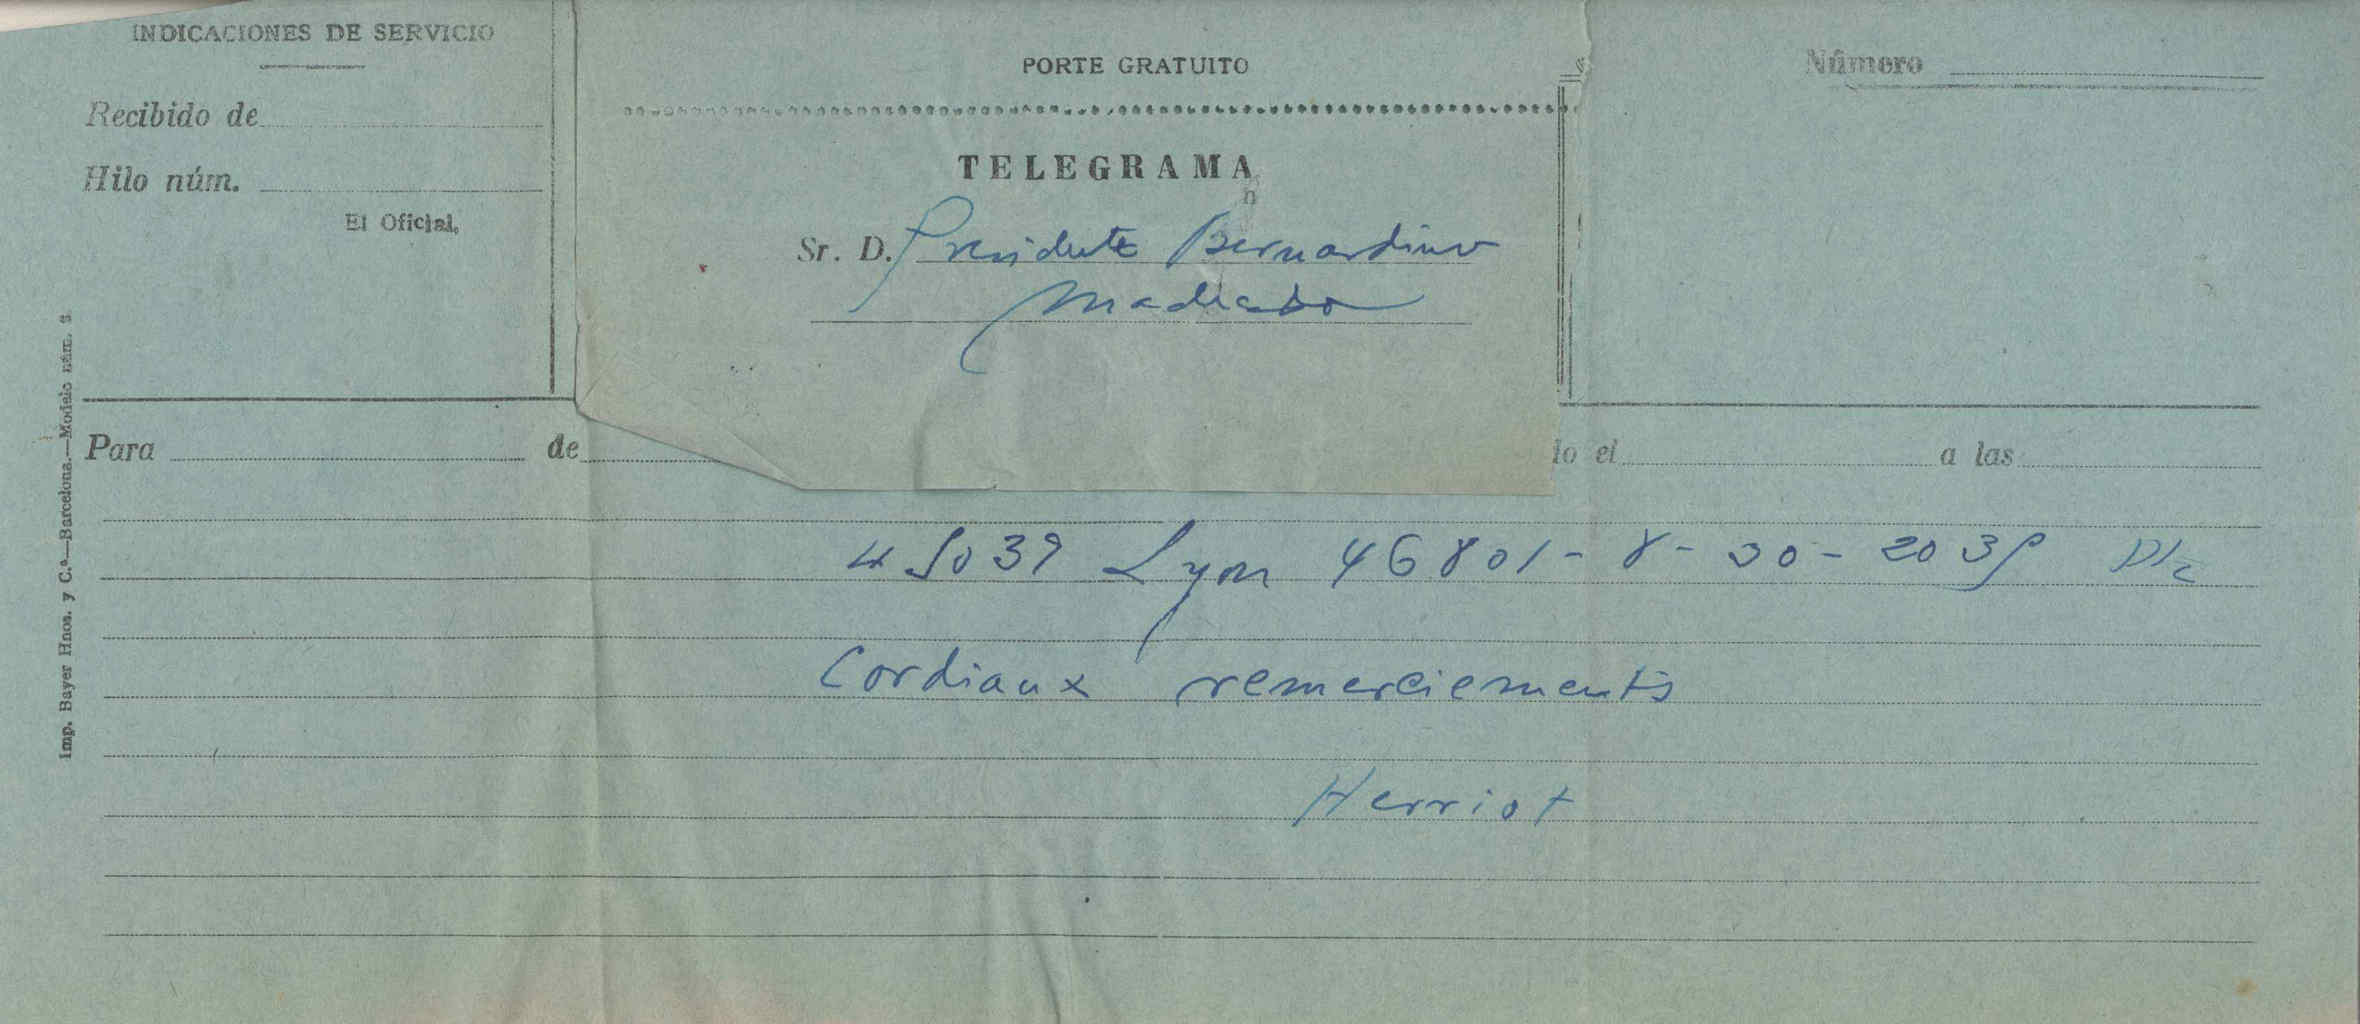 INDICACIONES DE SERVICIO
Recibido de
Hilo núm.
El Oficial,
PORTE GRATUITO
TELEGRAMA
Sr. D. Presidente Bernardino
Machado
Número
Imp. Bayer Hnos. y C.ª—Barcelona.—Modelo núm. 3.
Para de do el a las
Lyon 46801 - 8 - 30 - 20
Cordiaux remerciements
Herriot